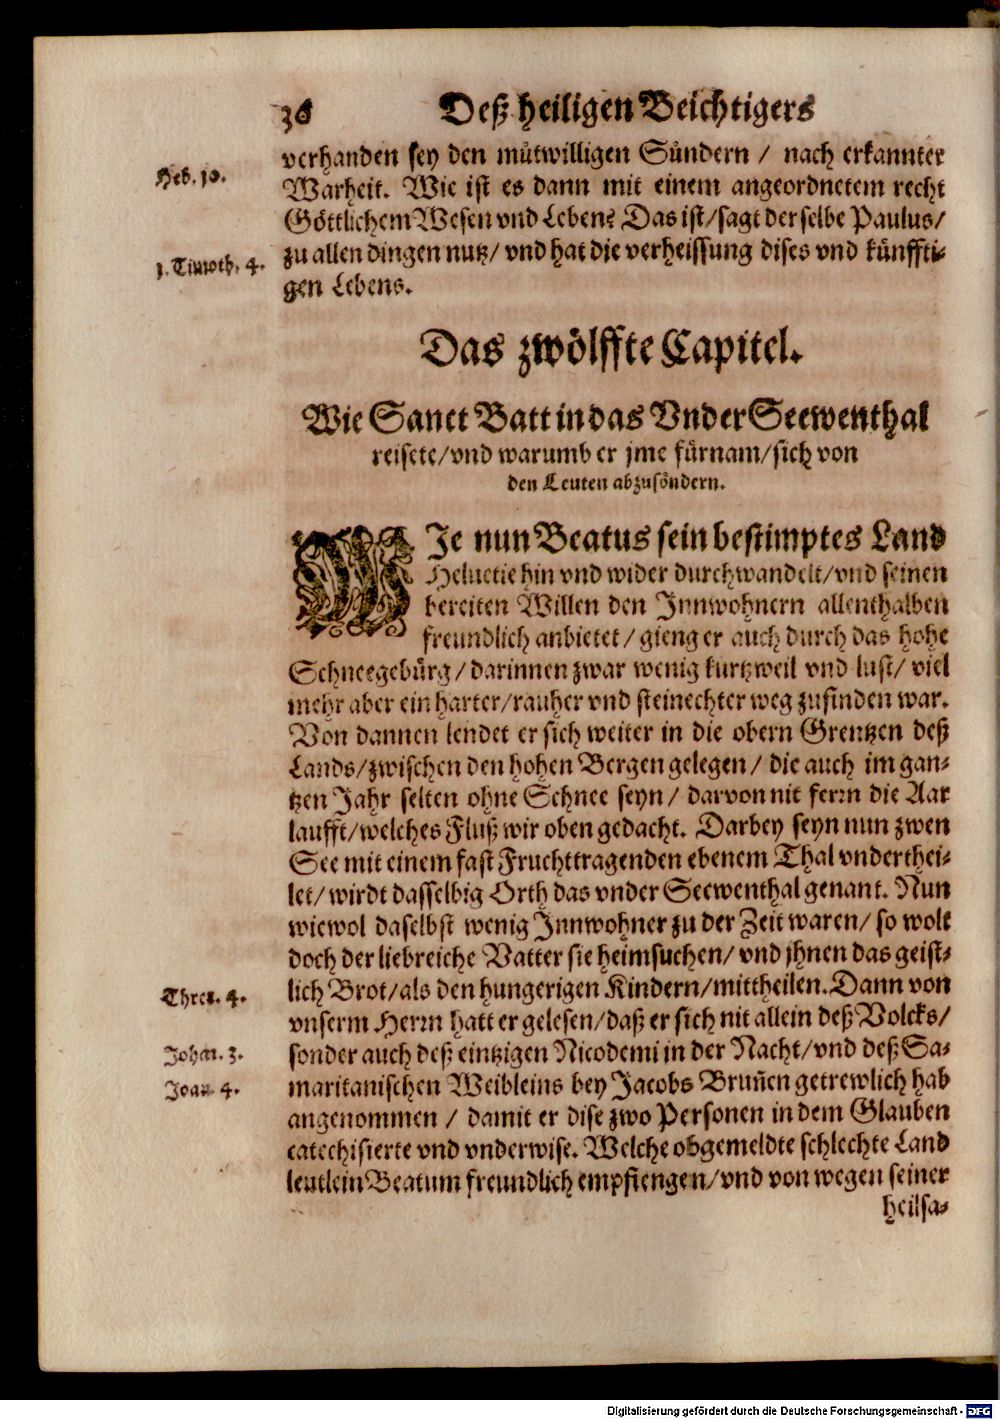 36 Deß heiligen Beichtigers
verhanden sey den můtwilligen Sündern / nach erkannter
Heb. 10.
Warheit. Wie ist es dann mit einem angeordnetem recht
Göttlichem Wesen vnd Leben? Das ist / sagt derselbe Paulus /
zu allen dingen nutz / vnd hat die verheissung dises vnd künffti-
1. Timoth. 4.
gen Lebens.
Das zwölffte Capitel.
Wie Sanct Batt in das Vnder Seewenthal
reisete / vnd warumb er jme fürnam / sich von
den Leuten abzusöndern.
WIe nun Beatus sein bestimptes Land
Heluetie hin vnd wider durchwandelt / vnd seinen
bereiten Willen den Innwohnern allenthalben
freundlich anbietet / gieng er auch durch das hohe
Schneegebürg / darinnen zwar wenig kurtzweil vnd lust / viel
mehr aber ein harter / rauher vnd steinechter weg zufinden war.
Von dannen lendet er sich weiter in die obern Grentzen deß
Lands / zwischen den hohen Bergen gelegen / die auch im gan-
tzen Jahr selten ohne Schnee seyn / darvon nit ferrn die Aar
laufft / welches Fluß wir oben gedacht. Darbey seyn nun zwen
See mit einem fast Fruchttragenden ebenem Thal vnderthei-
let / wirdt dasselbig Orth das vnder Seewenthal genant. Nun
wiewol daselbst wenig Innwohner zu der Zeit waren / so wolt
doch der liebreiche Vatter sie heimsuchen / vnd jhnen das geist-
Thren. 4.
lich Brot / als den hungerigen Kindern / mittheilen. Dann von
vnserm Herrn hatt er gelesen / daß er sich nit allein deß Volcks /
Johan. 3.
sonder auch deß eintzigen Nicodemi in der Nacht / vnd deß Sa-
Joan. 4.
maritanischen Weibleins bey Jacobs Bruñen getrewlich hab
angenommen / damit er dise zwo Personen in dem Glauben
catechisierte vnd vnderwise. Welche obgemeldte schlechte Land
leutlein Beatum freundlich empfiengen / vnd von wegen seiner
heilsa-
Digitalisierung gefördert durch die Deutsche Forschungsgemeinschaft - DFG